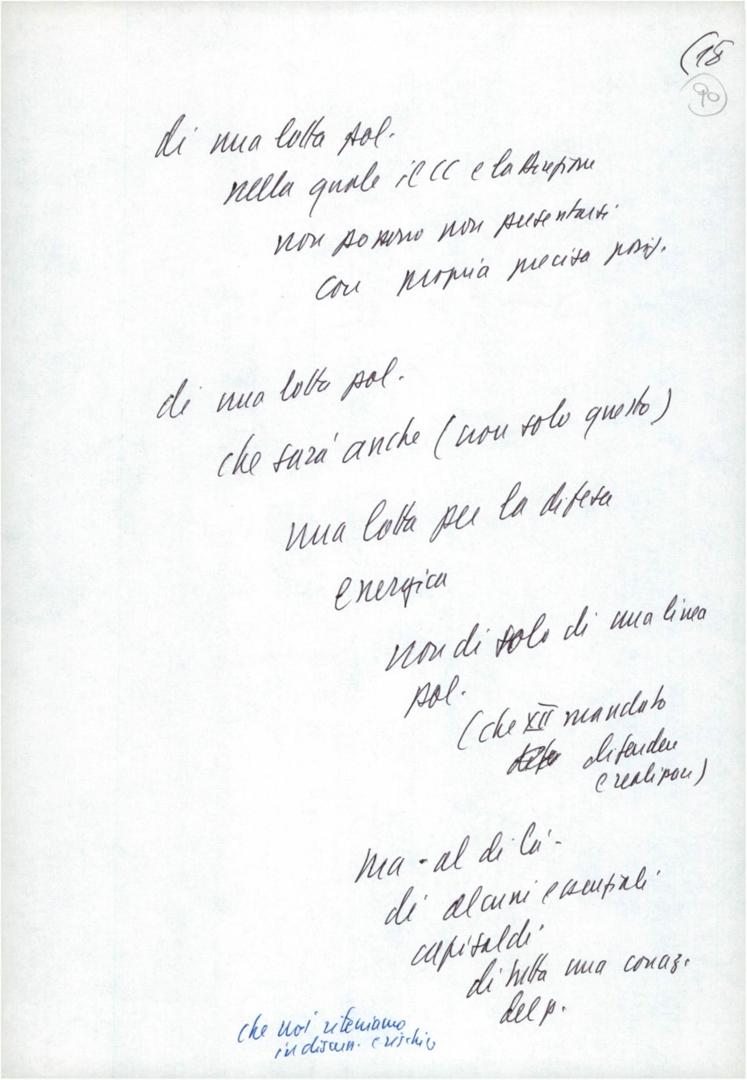 (18
90
di una lotta pol.
nella quale il CC e la Direzione
non possono non presentarsi
con propria precisa posiz.
di una lotta pol.
che sarà anche (non solo questo)
una lotta per la difesa
energica
non di solo di una linea
pol.
(che XII mandato
difendere
e realizzare)
ma - al di là -
di alcuni essenziali
capisaldi
di tutta una concez.
del p.
che noi riteniamo
in discuss. e rischio